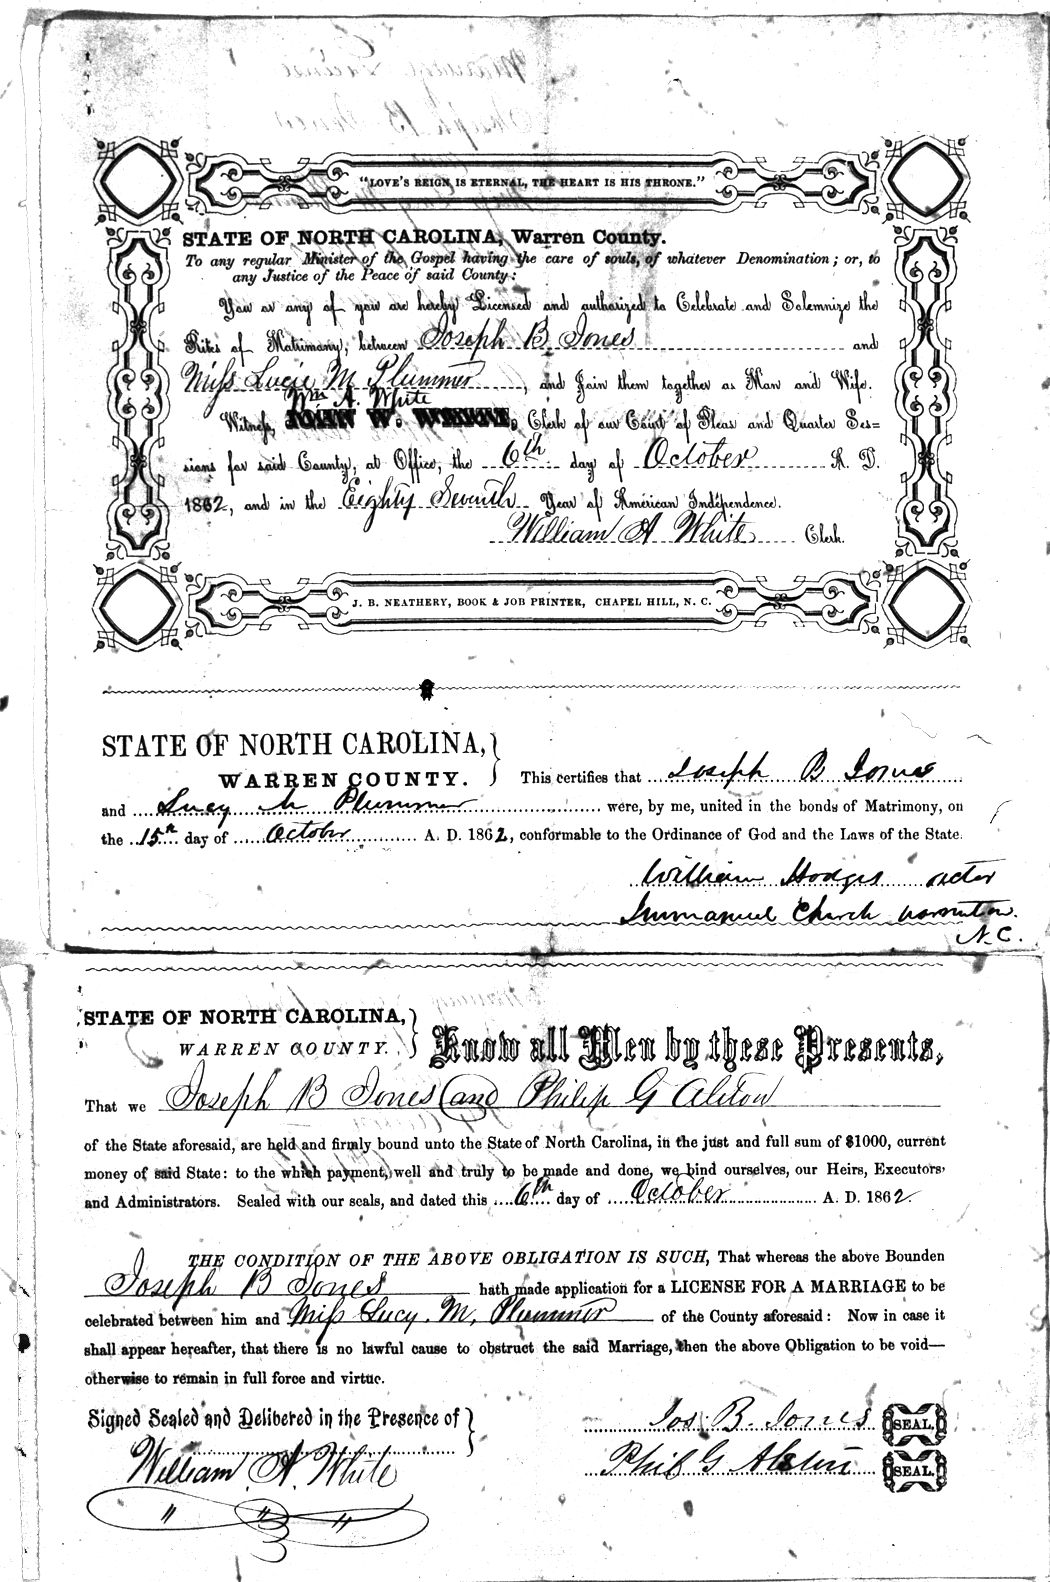 "LOVE'S REIGN IS ETERNAL, THE HEART IS HIS THRONE."
STATE OF NORTH CAROLINA, Warren County.
To any regular Minister of the Gospel having the care of souls, of whatever Denomination; or, to
any Justice of the Peace of said County:
You or any of you are hereby Licensed and authorized to Celebrate and Solemnize the
Rites of Matrimony, between Joseph B. Jones and
Miss Lucie M Plummer, and Join them together as Man and Wife.
Wm A. White
Witness, JOHN W. Clerk of our Court of Pleas and Quarter Ses=
sions for said County, at Office, the 6th day of October A. D.
1862, and in the Eighty Seventh Year of American Independence.
William A White Clerk.
J. B. NEATHERY, BOOK & JOB PRINTER, CHAPEL HILL, N. C.
STATE OF NORTH CAROLINA,
WARREN COUNTY. This certifies that Joseph B Jones
and Lucy M Plummer were, by me, united in the bonds of Matrimony, on
the 15th day of October A. D. 1862, conformable to the Ordinance of God and the Laws of the State.
William Hodges rector
Immanuel Church Warrenton.
N.C.
STATE OF NORTH CAROLINA,
WARREN COUNTY. Know all Men by these Presents,
That we Joseph B Jones and Philip G Alston
of the State aforesaid, are held and firmly bound unto the State of North Carolina, in the just and full sum of $1000, current
money of said State: to the which payment, well and truly to be made and done, we bind ourselves, our Heirs, Executors,
and Administrators. Sealed with our seals, and dated this 6th day of October A. D. 1862
THE CONDITION OF THE ABOVE OBLIGATION IS SUCH, That whereas the above Bounden
Joseph B Jones hath made application for a LICENSE FOR A MARRIAGE to be
celebrated between him and Miss Lucy. M, Plummer of the County aforesaid: Now in case it
shall appear hereafter, that there is no lawful cause to obstruct the said Marriage, then the above Obligation to be void—
otherwise to remain in full force and virtue.
Signed Sealed and Delibered in the Presence of Jos. B. Jones SEAL.
William A. White Phil G Alston SEAL.